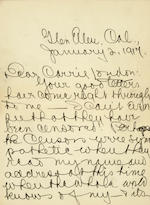 Glen Ellen, Cal.
January 2, 1919.
Dear Carrie London:
Your good letters
have come right through
to me
that they have
been censored! Perhaps
the Censors were sym-
pathetic when they
read my name and
address. At this time
when the whole world
knows of my